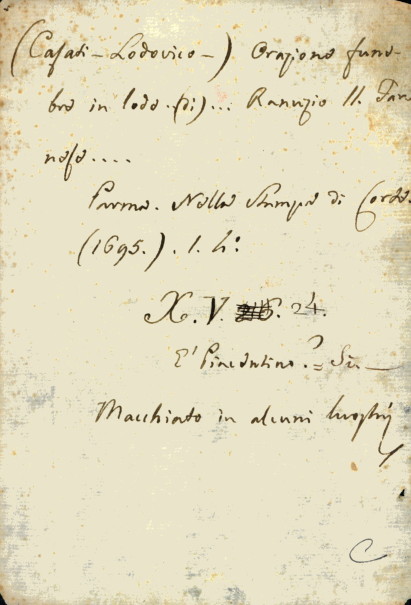 (Casati-Lodovico-) Orazione fune-
bre in lode.(di)... Ranuzio II. Far
nese....
Parma. Nella Stampa di Corte.
(1695.). I. 4:
X. V. 24.
E' Piacentino.? = Sì_
Macchiato in alcuni luoghi
C